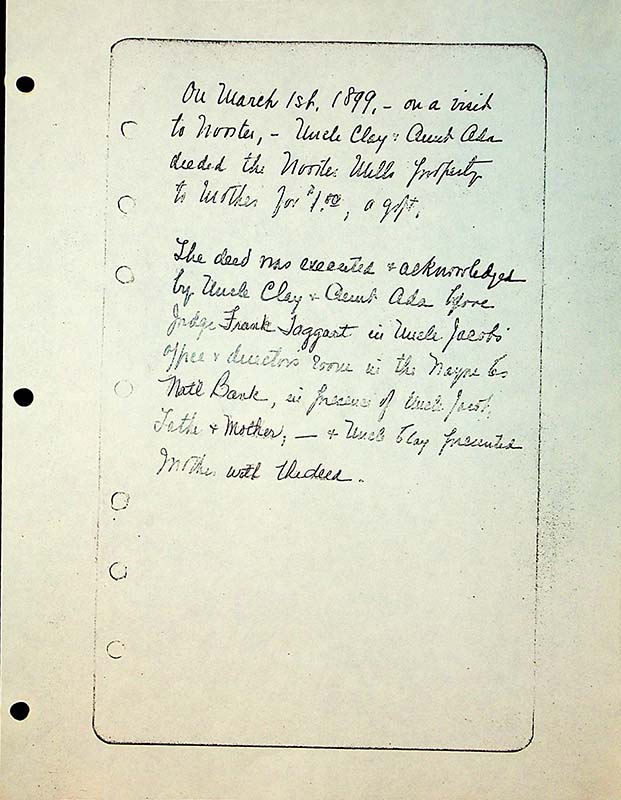 On March 1st, 1899, - on a visit
to Wooster, - Uncle Clay & Aunt Ada
deeded the Wooster Mills property
to Mother for $1.00, a gift.
The deed was executed & acknowledged
by Uncle Clay & Aunt Ada before
Judge Frank Taggart in Uncle Jacob's
office & directors room in the Wayne Co
Nat'l Bank, in presence of Uncle Jacob,
Father & Mother, — & Uncle Clay presented
Mother with the deed.